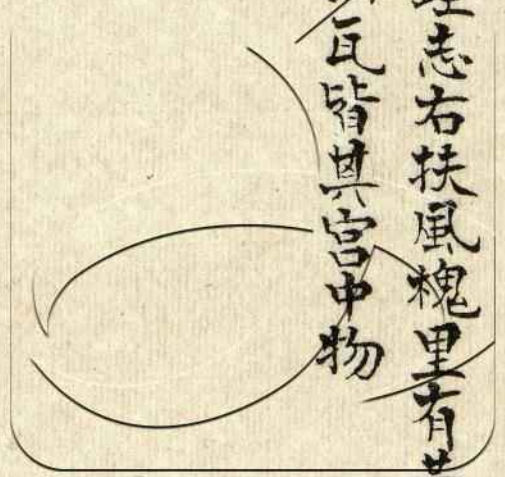 志右扶風槐里有
瓦皆其宮中物